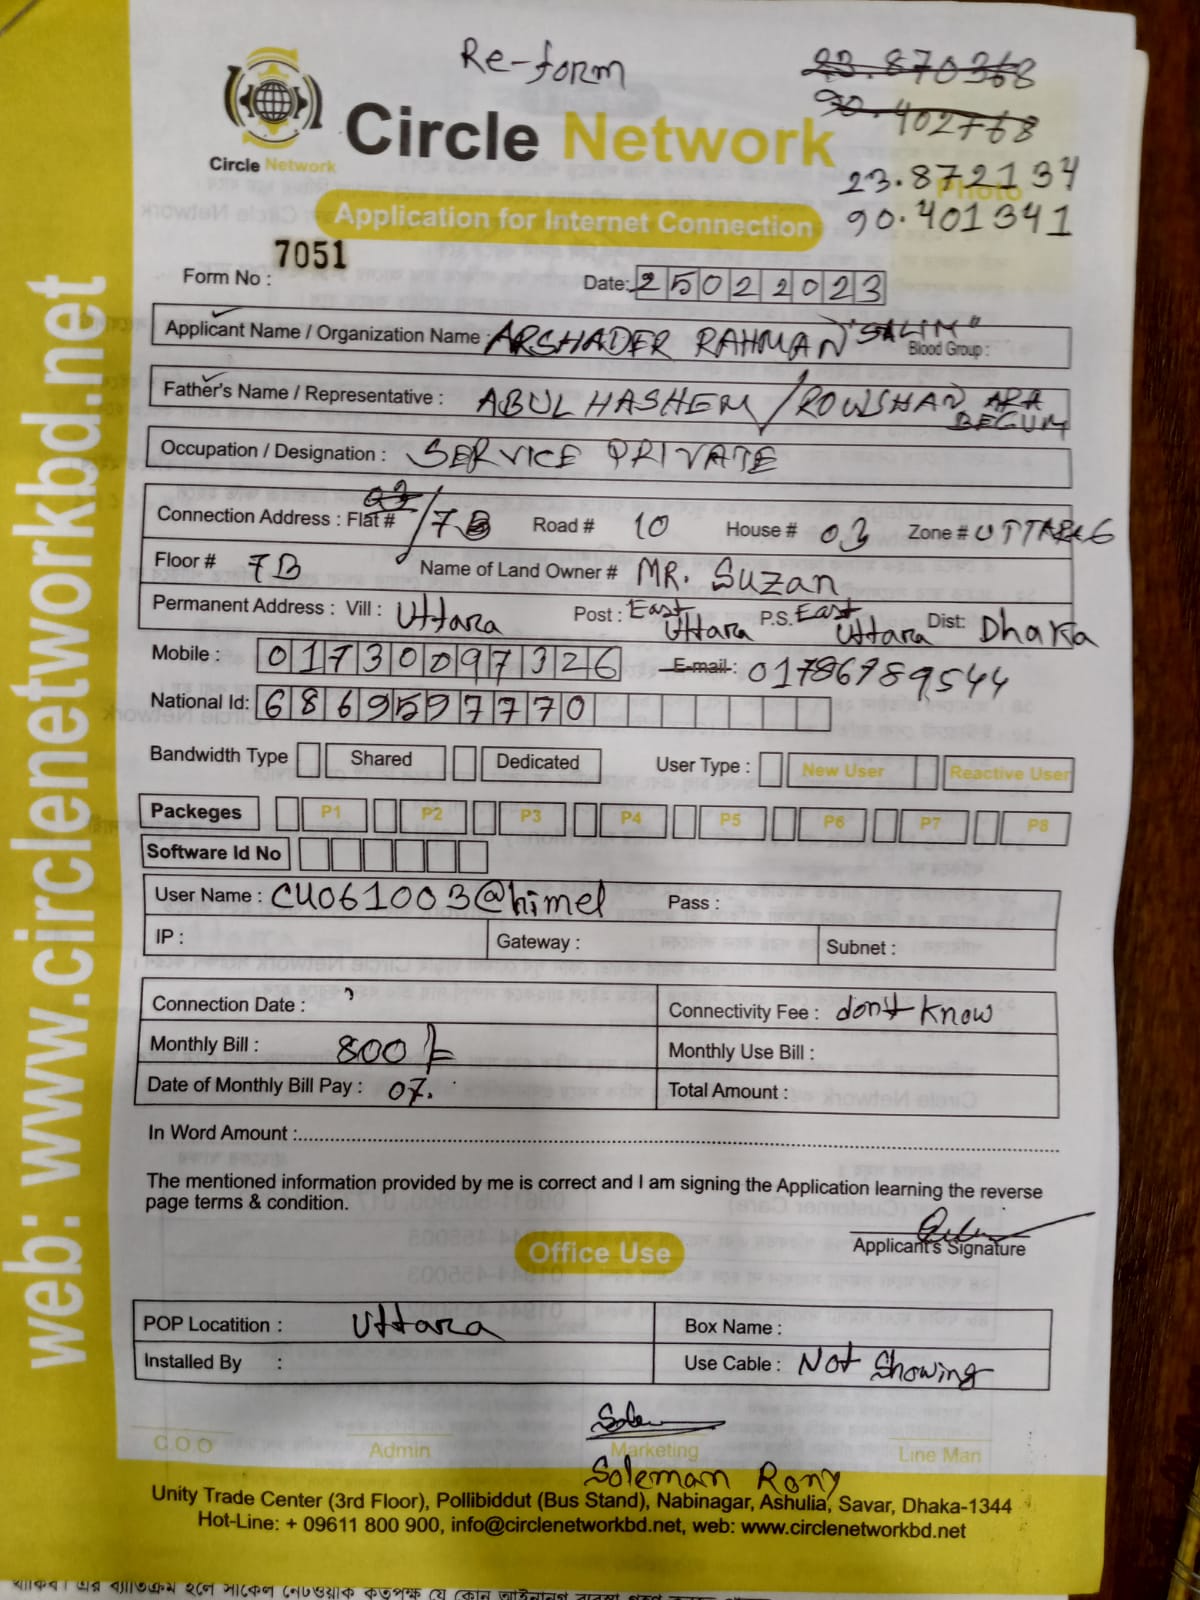 Re-form
23.870368
90.402768
Circle Network
Circle Network
23.872134
Photo
90.401341
Application for Internet Connection
Form No : 7051
Date: 25022023
Applicant Name / Organization Name : ARSHADER RAHMAN "SALIM"
Blood Group :
Father's Name / Representative : ABUL HASHEM / ROWSHAN ARA BEGUM
Occupation / Designation : SERVICE PRIVATE
Connection Address : Flat # /7B Road # 10 House # 03 Zone # UTTARA 6
Floor # 7B Name of Land Owner # MR. Suzan
Permanent Address : Vill : Uttara Post : East Uttara P.S. East Uttara Dist: Dhaka
Mobile : 01730097326 E-mail : 01786989544
National Id: 6869597770
Bandwidth Type Shared Dedicated User Type : New User Reactive User
Packeges P1 P2 P3 P4 P5 P6 P7 P8
Software Id No
User Name : CU061003@himel Pass :
IP : Gateway : Subnet :
Connection Date : ? Connectivity Fee : don't know
Monthly Bill : 800/= Monthly Use Bill :
Date of Monthly Bill Pay : 07. Total Amount :
In Word Amount :
The mentioned information provided by me is correct and I am signing the Application learning the reverse
page terms & condition.
Applicant's Signature
Office Use
POP Locatition : Uttara Box Name :
Installed By : Use Cable : Not Showing
C.O.O Admin Marketing Line Man
Soleman Rony
Unity Trade Center (3rd Floor), Pollibiddut (Bus Stand), Nabinagar, Ashulia, Savar, Dhaka-1344
Hot-Line: + 09611 800 900, info@circlenetworkbd.net, web: www.circlenetworkbd.net
web: www.circlenetworkbd.net